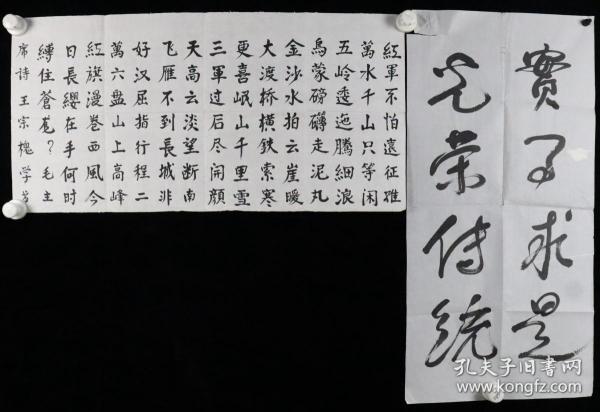 紅軍不怕遠征难
萬水千山只等闲
五岭逶迤腾細浪
烏蒙磅礴走泥丸
金沙水拍云崖暖
大渡桥横鉄索寒
更喜岷山千里雪
三軍过后尽开顔
天高云淡望断南
飞雁不到長城非
好汉屈指行程二
萬六盘山上高峰
紅旗漫卷西風今
日長缨在手何时
縛住蒼龙？毛主
席诗王宗槐学书
實事求是
光荣传统
孔夫子旧书网
www.kongfz.com